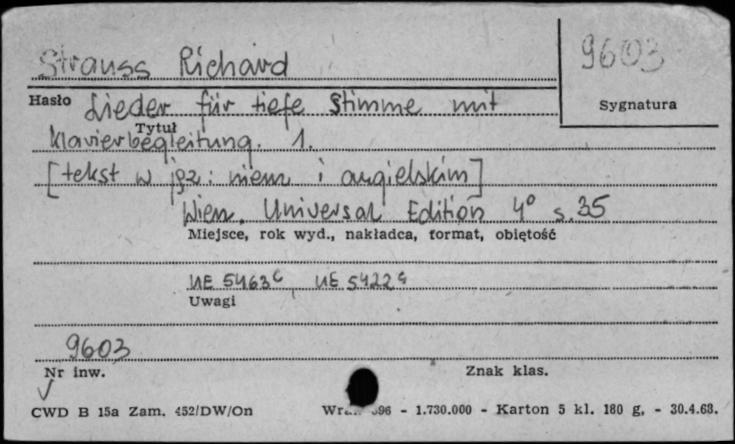 Strauss Richard
9603
Sygnatura
Hasło Lieder für tiefe Stimme mit
Tytuł
Klavierbegleitung. 1.
[tekst w jęz: niem i angielskim]
Wien. Universal Edition 4° s.35
Miejsce, rok wyd., nakładca, format, objętość
UE 5463c, UE 5422c
Uwagi
9603
Nr inw.
Znak klas.
CWD B 15a Zam. 452/DW/On 396 - 1.730.000 - Karton 5 kl. 180 g. - 30.4.63.